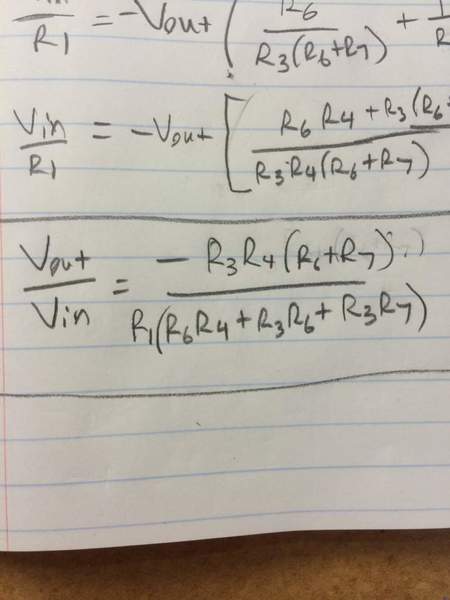 R1 = -Vout ( R6 / R3(R6+R7) +
Vin / R1 = -Vout [ R6 R4 + R3(R6 / R3 R4(R6+R7)
Vout / Vin = - R3 R4 (R6+R7) / R1(R6R4 + R3R6 + R3R7)